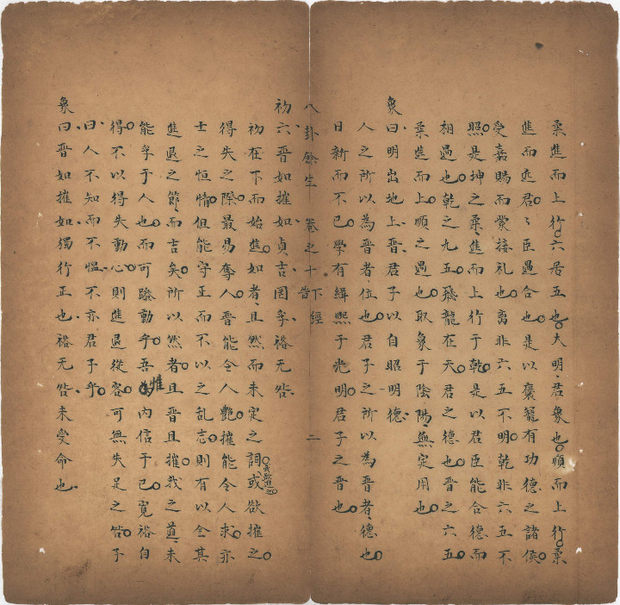 柔進而上行六居五也大明君象也順而上行柔
進而丞君君臣遇合也是以褒寵有功德之諸侯
受嘉賜而蒙接礼也离非六五不明乾非六五不
照是坤之柔進而上行于乾是以君臣能合德而
相遇也乾之九五飛龍在天君之德也晋之六五
柔進而上順之遇也取象于陰陽無定用也
象曰明出地上晋君子以自照明德
人之所以為晋者位也君子之所以為晋者德也
日新而不已學有緝熙于光明君子之晋也
八卦餘生 卷之十 晋 下經 二
初六晋如摧如貞吉罔孚裕无咎
初在下而始進如者且然而未定之詞或欲摧之
得失之際最易奪人晋能令人艷摧能令人求亦
士之恒情但能守正而不以之乱志則有以全其
進退之節而吉矣所以然者且晋且摧我之道未
能孚于人也而可躁動乎吾惟內信于已寬裕自
得不以得失動心則進退從容可無失足之咎子
曰人不知而不慍不亦君子乎
象曰晋如摧如獨行正也裕无咎未受命也